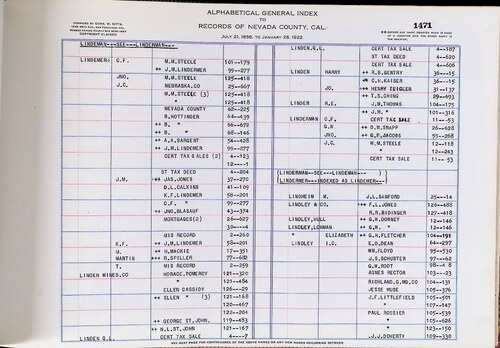 ALPHABETICAL GENERAL INDEX
TO
RECORDS OF NEVADA COUNTY, CAL.
JULY 21, 1856, TO JANUARY 28, 1922
1471
COPYRIGHT CLAIMED
LINDEMAN---SEE---LINDERMAN---
LINDEMEN G.F. M.M.STEELE 101--179
++ J.M.LINDERMER 99--277
JNO. M.M.STEELE 125--418
J.G. NEBRASKA,CO 25--667
M.M.STEELE (3) 125--418
++ " 125--418
NEVADA COUNTY 62--225
B.HOTTINGER 64--439
++ B. " 66--677
++ B. " 68--146
++ A.H.SARGENT 54--428
++ J.M.LINDERMER 99--277
CERT TAX SALES (2) 4--123
12----1
ST TAX DEED 4--204
J.M. ++ JAS.JONES 37--270
D.L.CALKINS 41--109
K.F.LINDERMER 58--201
C.F. " 99--277
++ JNO.BLASAUF 43--374
MORTGAGES(2) 26--627
30----4
MIS RECORD 2--260
K.F. ++ J.M.LINDERMER 58--201
M. ++ H.MACKIE 17--351
MARTIN ++ R.SPILLER 77--682
T. MIS RECORD 2--259
LINDEN MINES,CO HORACE,POMEROY 121--320
121--484
ELLEN CASSIDY 126--29
++ ELLEN " (3) 121--168
120--467
122--204
++ GEORGE ST.JOHN, 119--483
++ N.L.ST.JOHN 121--167
LINDEN G.E. CERT TAX SALE 4----7
LINDEN,G.E. CERT TAX SALE 4--187
ST TAX DEED 4--620
CERT TAX SALE 4--606
LINDEN HARRY ++ R.B.GENTRY 36--15
++ C.H.KAISER 36--15
JO. +++ HENRY ZEIGLER 31--137
++ T.S.CHING 29--693
LINDER R.E. J.M.THOMAS 104--175
++ J.M. " 101--316
LINDERMAN C.F. CERT TAX SALE 11--53
G.N ++ D.W.SNAPP 26--628
JNO. ++ G.B.JACOBS 55--268
J.G. M.M.STEELE 12--118
++ " 12--243
CERT TAX SALE 11--53
(LINDERMAN--SEE---LINDEMAN--- )
(LINDERMER--INDEXED AS LINDEMER---)
LINDHEIM M. J.L.SANFORD 25--14
LINDLEY & CO. +++ F.L.JONES 126--488
R.R.BIDINGER 127--418
LINDLEY,HULL ++ G.H.DONNEY 12--146
LINDLEY,LOHMAN ++ G.M. " 12--146
" ELIZABETH ++ G.H.FLETCHER 104--191
LINDLEY I.C. E.D.DEAN 64--297
WM.FLOYD 95--530
J.S.SCHUSTER 97--62
G.W.ROOT 98--4
AGNES RECTOR 103---23
RICHLAND,G.MG,CO 104--131
JESSE MUSE 107--376
J.F.LITTLEFIELD 105--501
" 107--147
PAUL ROSSIER 105--539
" 105--626
" 123--150
J.J.DOHERTY 109--330